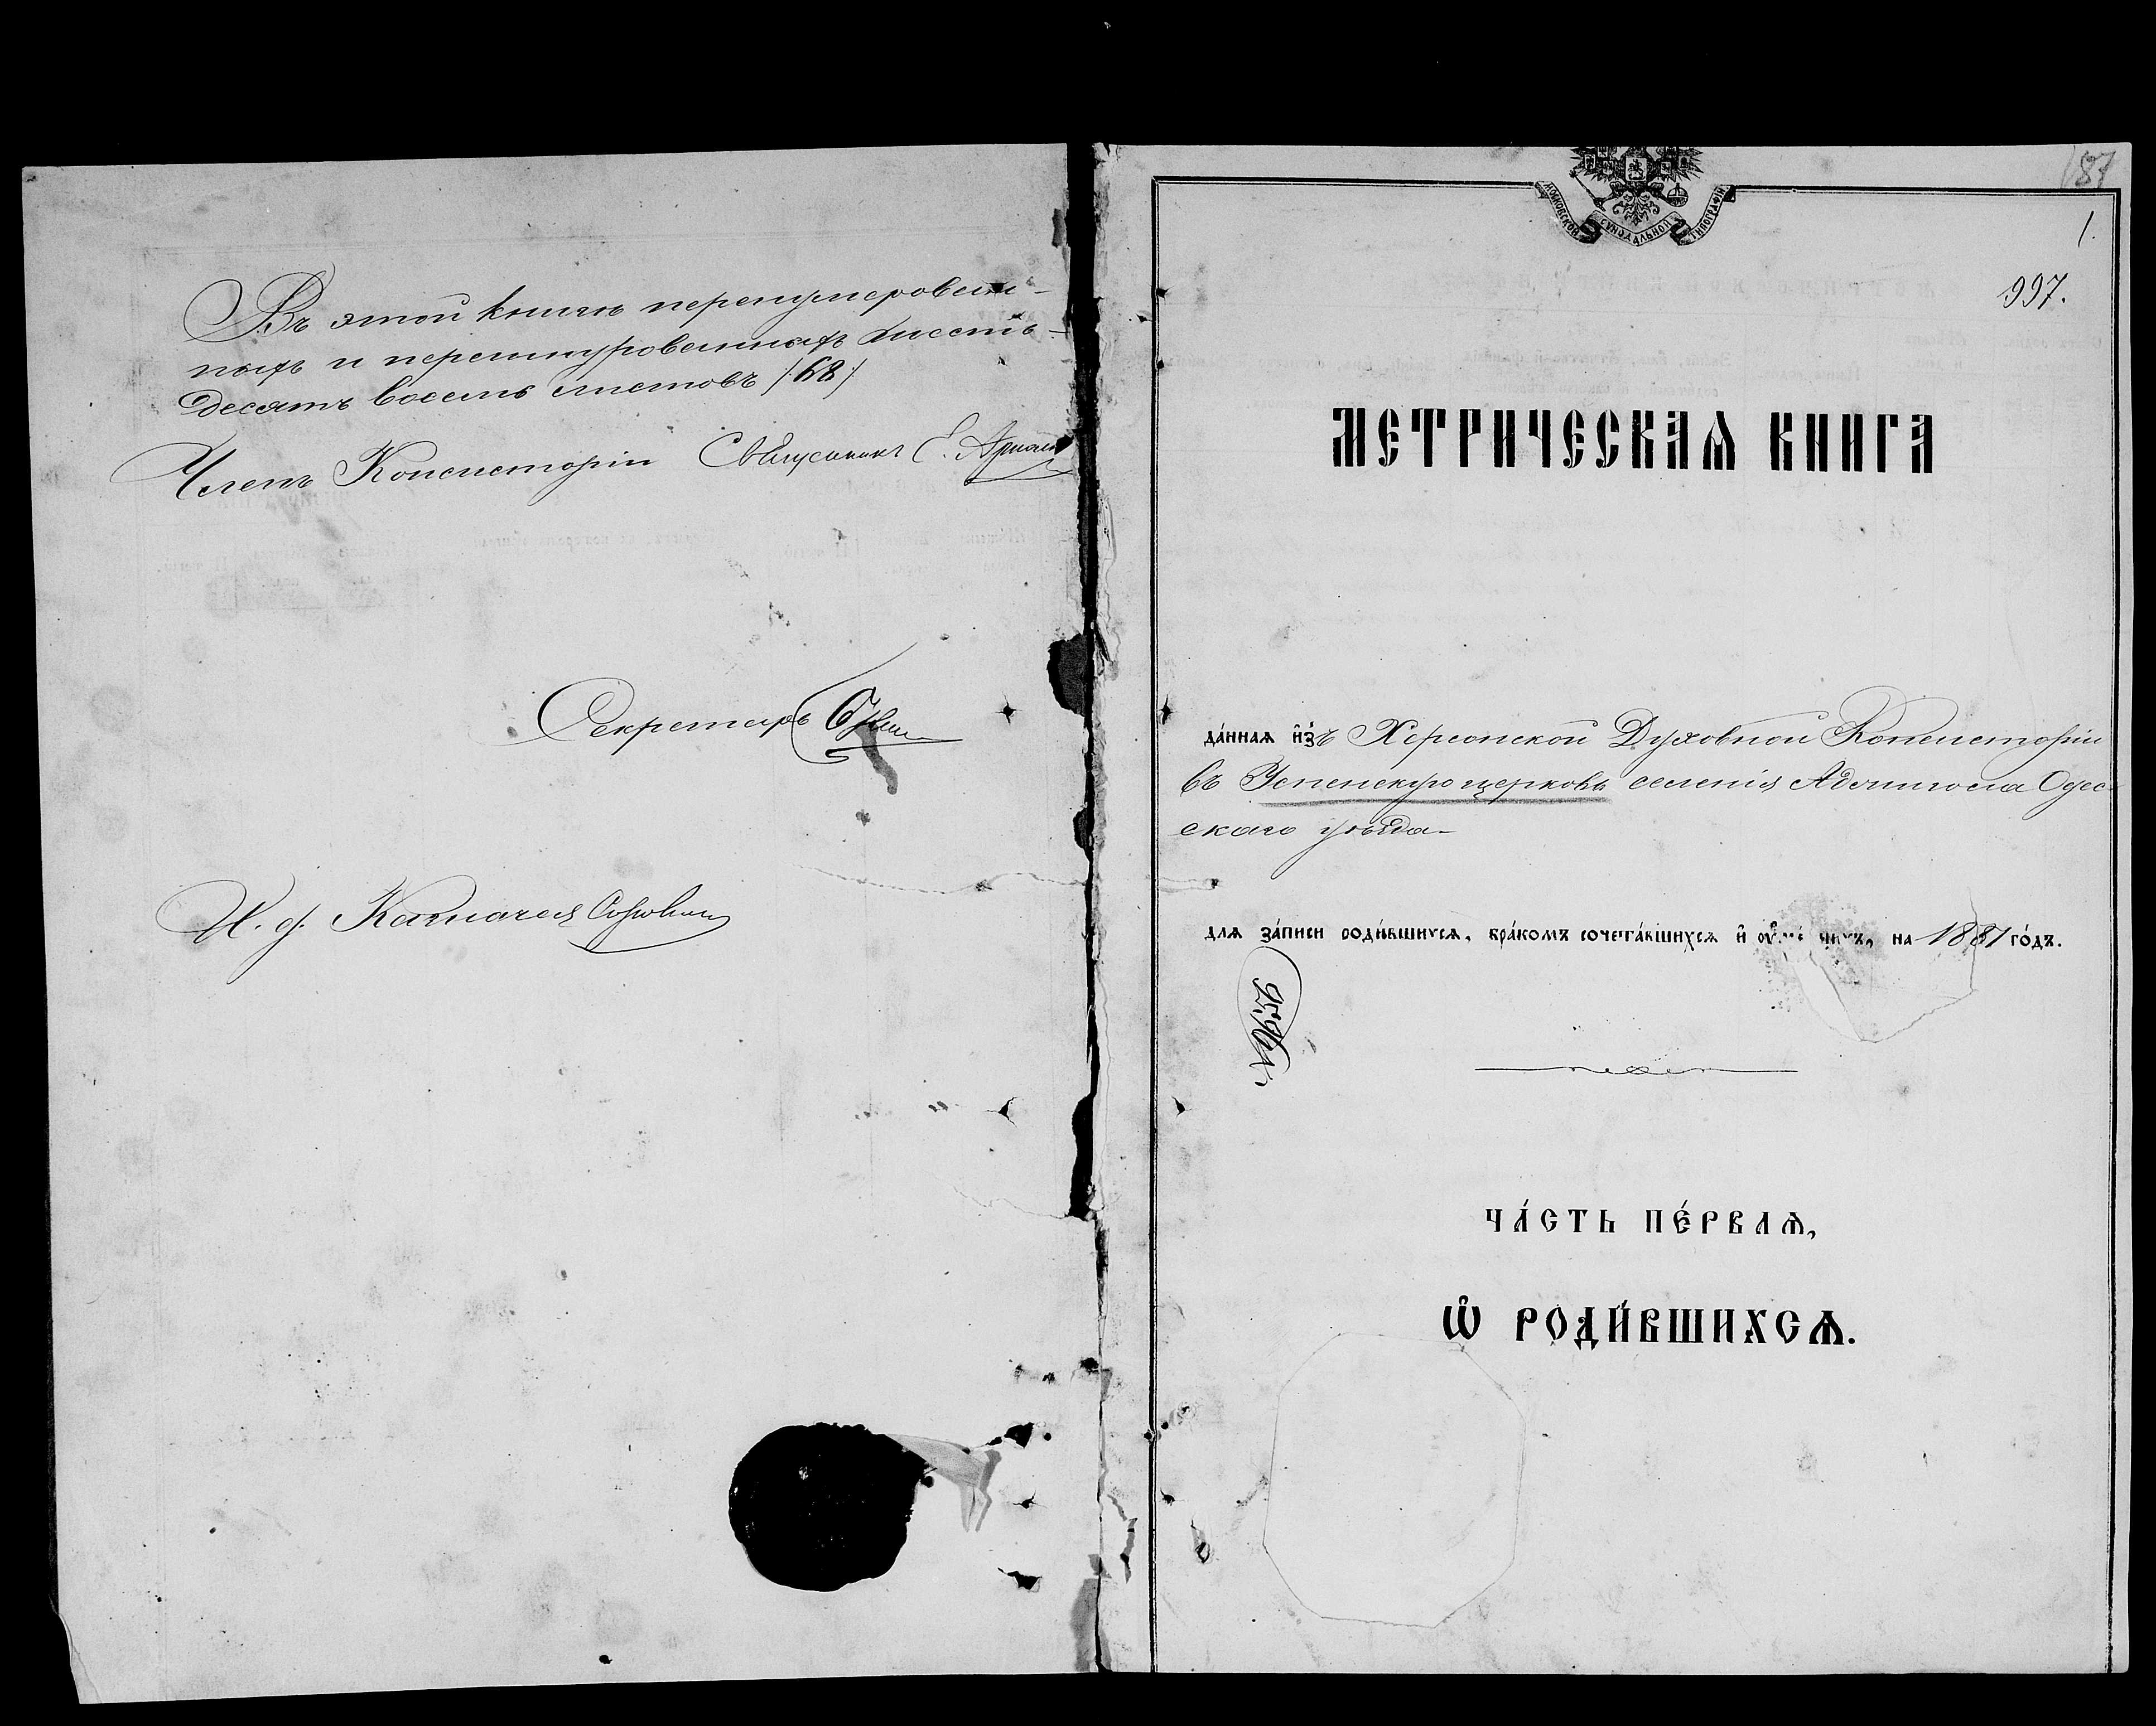 Въ этой книгѣ перенумерован-
ныхъ и перешнурованныхъ шесть-
десятъ восемь листовъ /68/
Членъ Консисторіи Священникъ Е.
Секретарь
И. д. Казначея
187
1.
МОСКОВСКОЙ СѴНОДАЛЬНОЙ ТИПОГРАФІИ
997.
МЕТРИЧЕСКАѦ КНИГА
да́ннаѧ и҆зъ Херсонской Духовной Консисторіи
въ Успенскую церковь селенія Аджигола Одес-
скаго уѣзда
для за́писи роди́вшихсѧ, бра́комъ сочета́вшихсѧ и҆ на 1881 го́дъ.
ЧА́СТЬ ПЕ́РВАѦ,
Ѽ РОДИ́ВШИХСѦ.